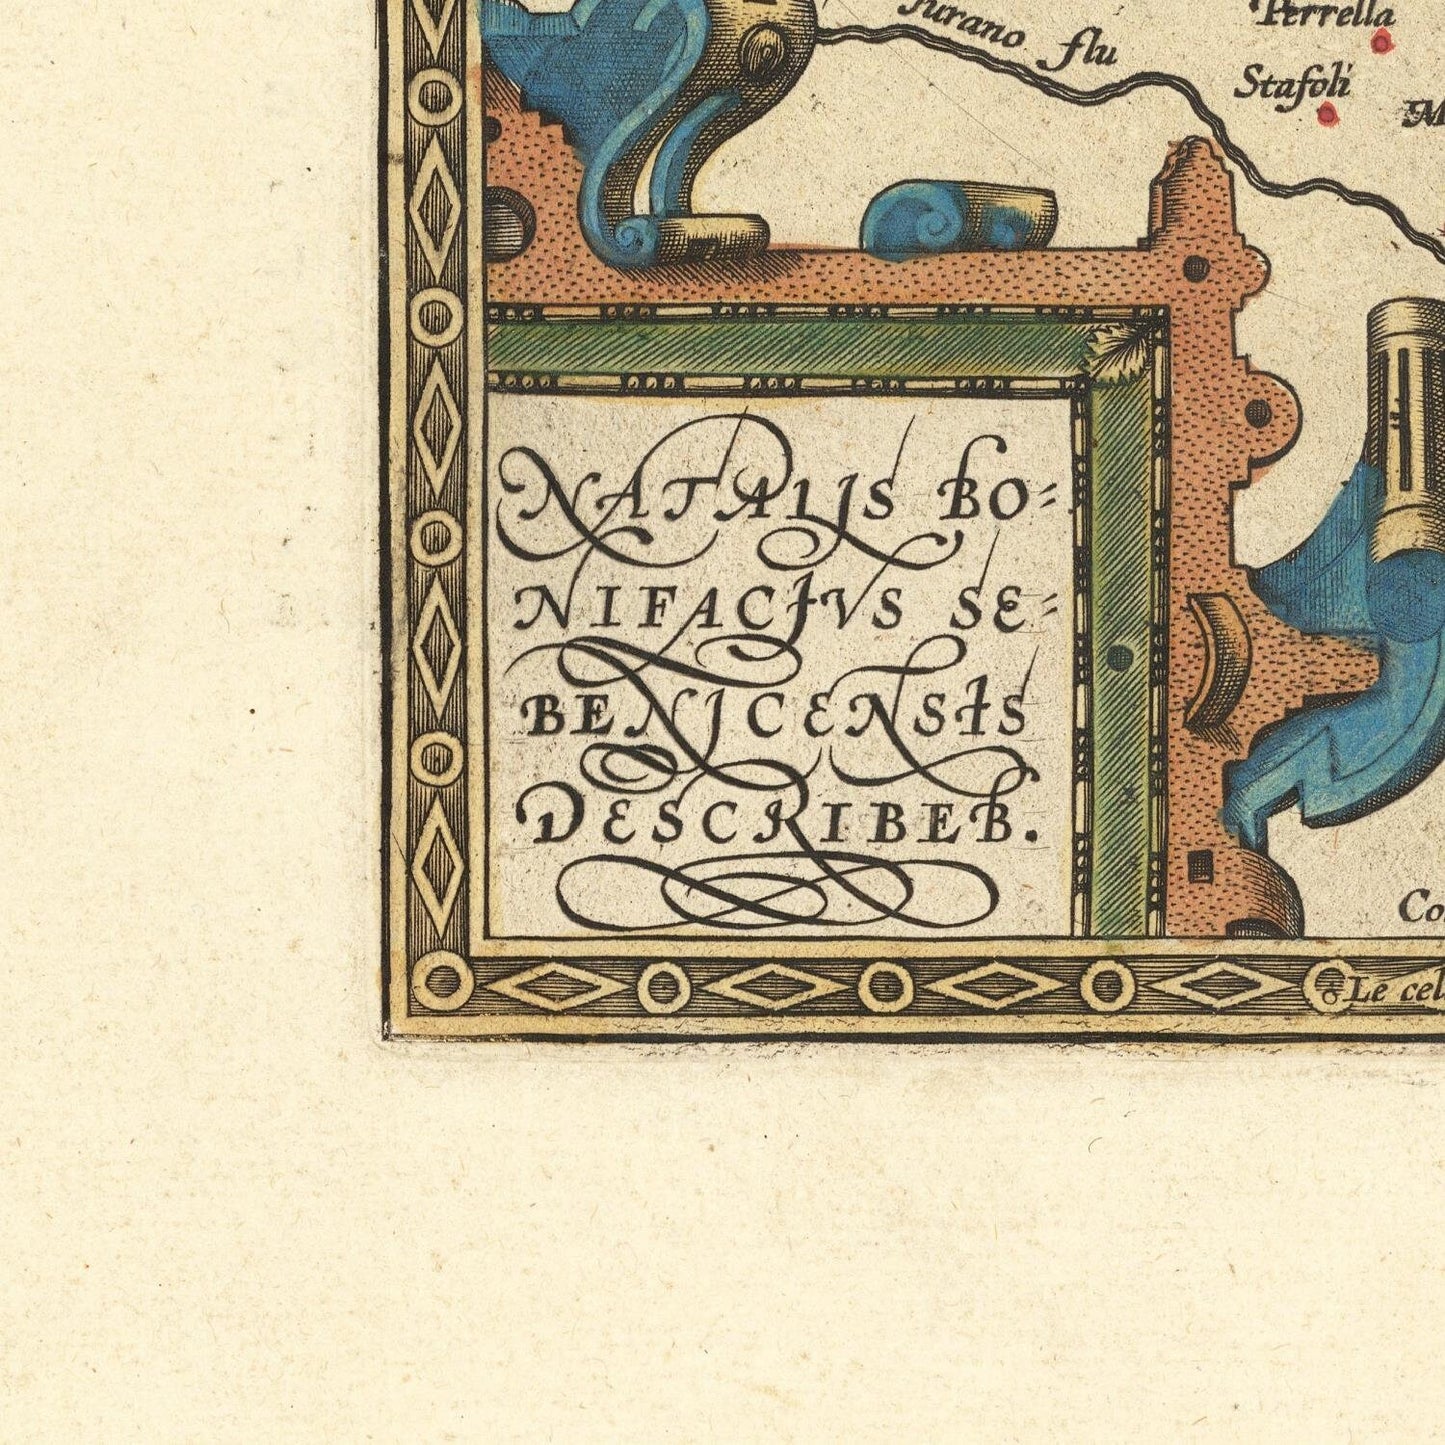 Turano flu
Perrella
Stafoli
NATALIS BO-
NIFACIVS SE-
BENICENSIS
DESCRIBEB.
Le